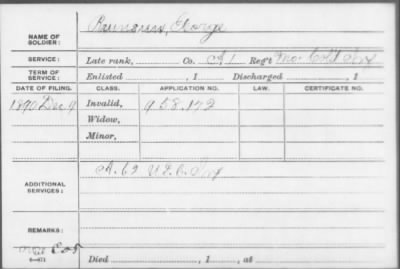 NAME OF SOLDIER: George
SERVICE: Late rank, Co. A 1 Reg't Mo. Cold Inf
TERM OF SERVICE: Enlisted , 1 Discharged , 1
DATE OF FILING. CLASS. APPLICATION NO. LAW. CERTIFICATE NO.
1890 Dec 9 Invalid, 958.172
Widow,
Minor,
ADDITIONAL SERVICES: A. 62 U.S.C. Inf
REMARKS:
Died , 1 , at